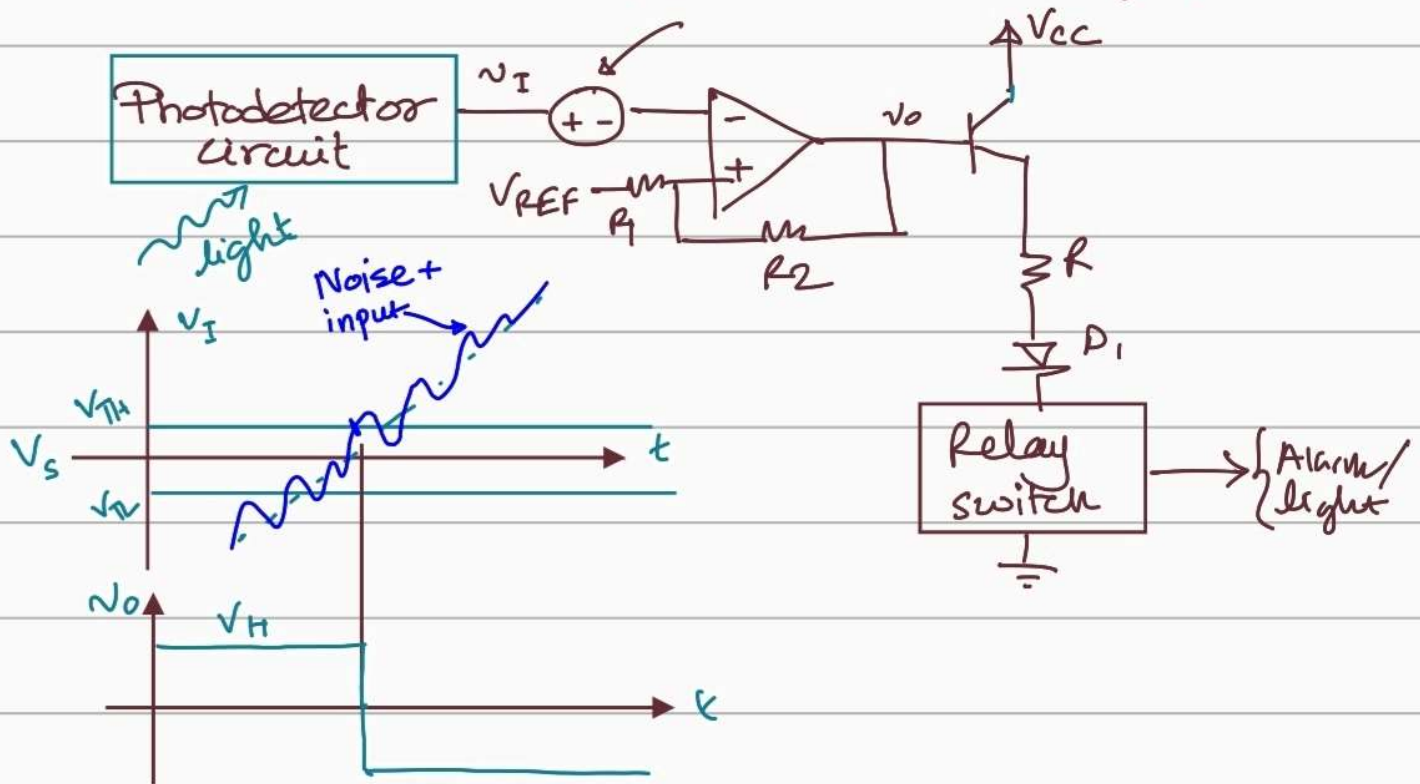 Photodetector
circuit
light
vI
+ -
-
+
VREF
R1
R2
vo
VCC
R
D1
Relay
switch
Alarm/
light
Noise+
input
vI
VTH
VS
VTL
t
vo
VH
t